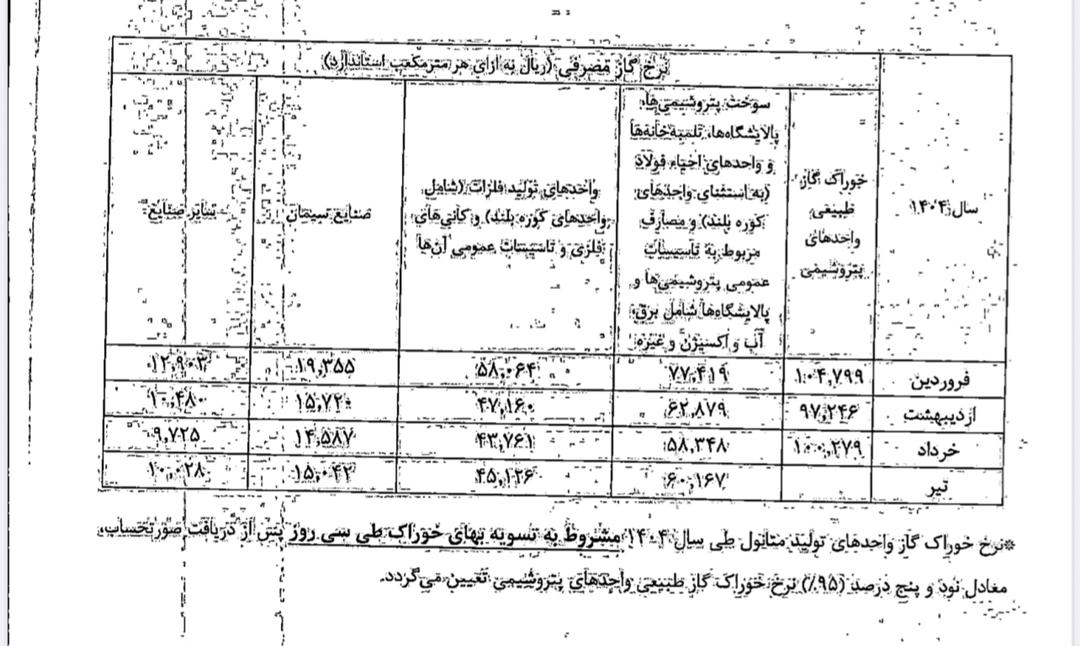 نرخ گاز مصرفی (ریال به ازای هر مترمکعب استاندارد)
سال ۱۴۰۴
خوراک گاز
طبیعی
واحدهای
پتروشیمی
سوخت پتروشیمی‌ها،
پالایشگاه‌ها، تلمبه‌خانه‌ها
و واحدهای احیاء فولاد
(به استثنای واحدهای
کوره بلند) و مصارف
مربوط به تاسیسات
عمومی پتروشیمی‌ها و
پالایشگاه‌ها شامل برق،
آب و اکسیژن و غیره
واحدهای تولید فلزات (شامل
واحدهای کوره بلند) و کانی‌های
فلزی و تاسیسات عمومی آن‌ها
صنایع سیمان
سایر صنایع
فروردین ۱۰۴,۷۹۹ ۷۷,۴۱۹ ۵۸,۰۶۴ ۱۹,۳۵۵ ۱۲,۹۰۳
اردیبهشت ۹۷,۲۴۶ ۶۲,۸۷۹ ۴۷,۱۶۰ ۱۵,۷۲۰ ۱۰,۴۸۰
خرداد ۱۰۰,۲۷۹ ۵۸,۳۴۸ ۴۳,۷۶۱ ۱۴,۵۸۷ ۹,۷۲۵
تیر ۶۰,۱۶۷ ۴۵,۱۲۶ ۱۵,۰۴۲ ۱۰,۰۲۸
*نرخ خوراک گاز واحدهای تولید متانول طی سال ۱۴۰۴ مشروط به تسویه بهای خوراک طی سی روز پس از دریافت صورتحساب،
معادل نود و پنج درصد (۹۵٪) نرخ خوراک گاز طبیعی واحدهای پتروشیمی تعیین می‌گردد.